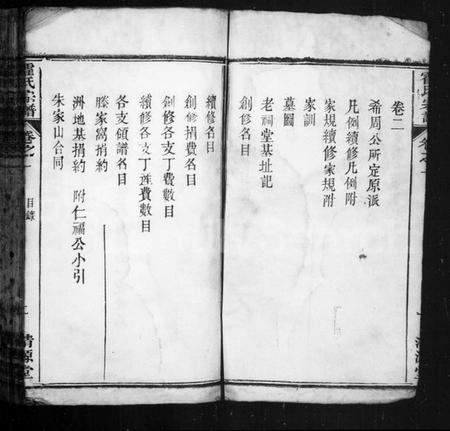 卷二
希周公所定原派
凡例續修凡例附
家規續修家規附
家訓
墓圖
老祠堂基址記
創修名目
續修名目
創修捐費名目
創修各支丁費數目
續修各支丁費數目
各支領譜名目
滕家窩捐約
洲地基捐約 附仁福公小引
朱家山合同
霍氏宗譜
卷之一
目錄
清源堂